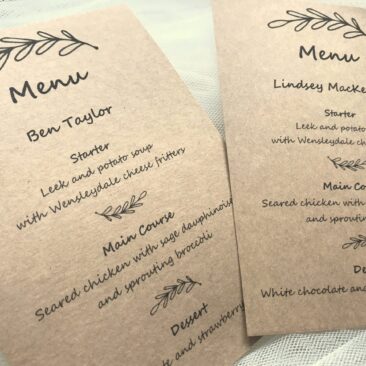 Menu
Ben Taylor
Starter
Leek and potato soup
with Wensleydale cheese fritters
Main Course
Seared chicken with sage dauphinoise
and sprouting broccoli
Dessert
and strawberry
Menu
Lindsey
Starter
Leek and
with Wensleydale
Main
Seared chicken with
and sprouting
White chocolate